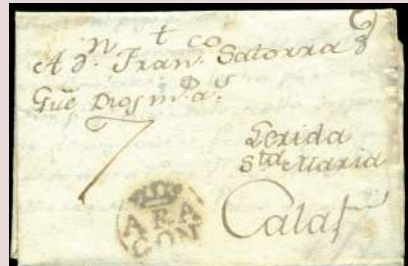 A Dn. Franco. Satorra
Gue Dios ms. as.
7
Lerida
Sta Maria
Calaf
ARA
GON